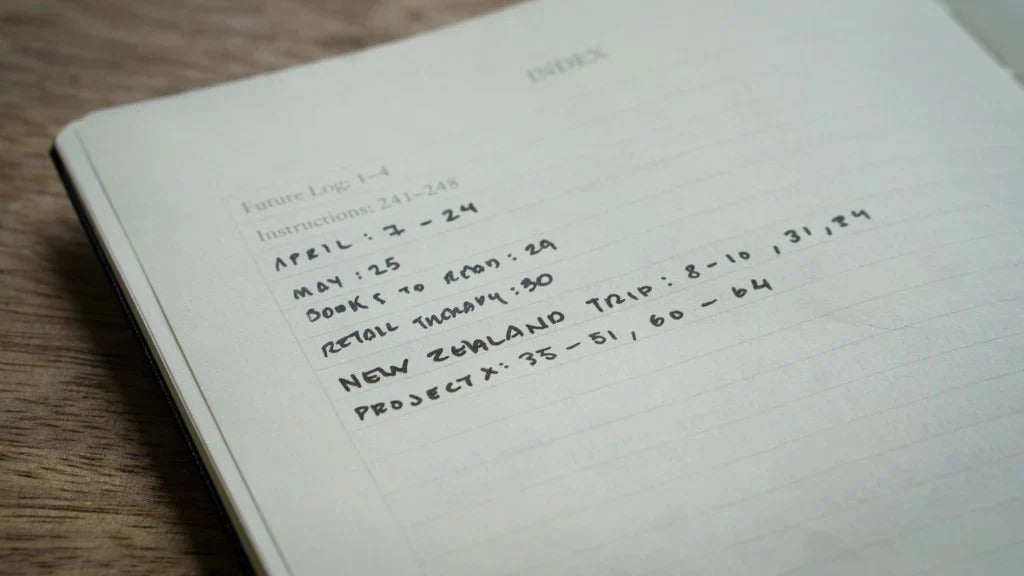 INDEX
Future Log: 1–4
Instructions: 241–248
APRIL : 7 - 24
MAY : 25
BOOKS TO READ : 29
RETAIL THERAPY : 30
NEW ZEALAND TRIP : 8-10 , 31 , 34
PROJECT X : 35 - 51 , 60 - 64